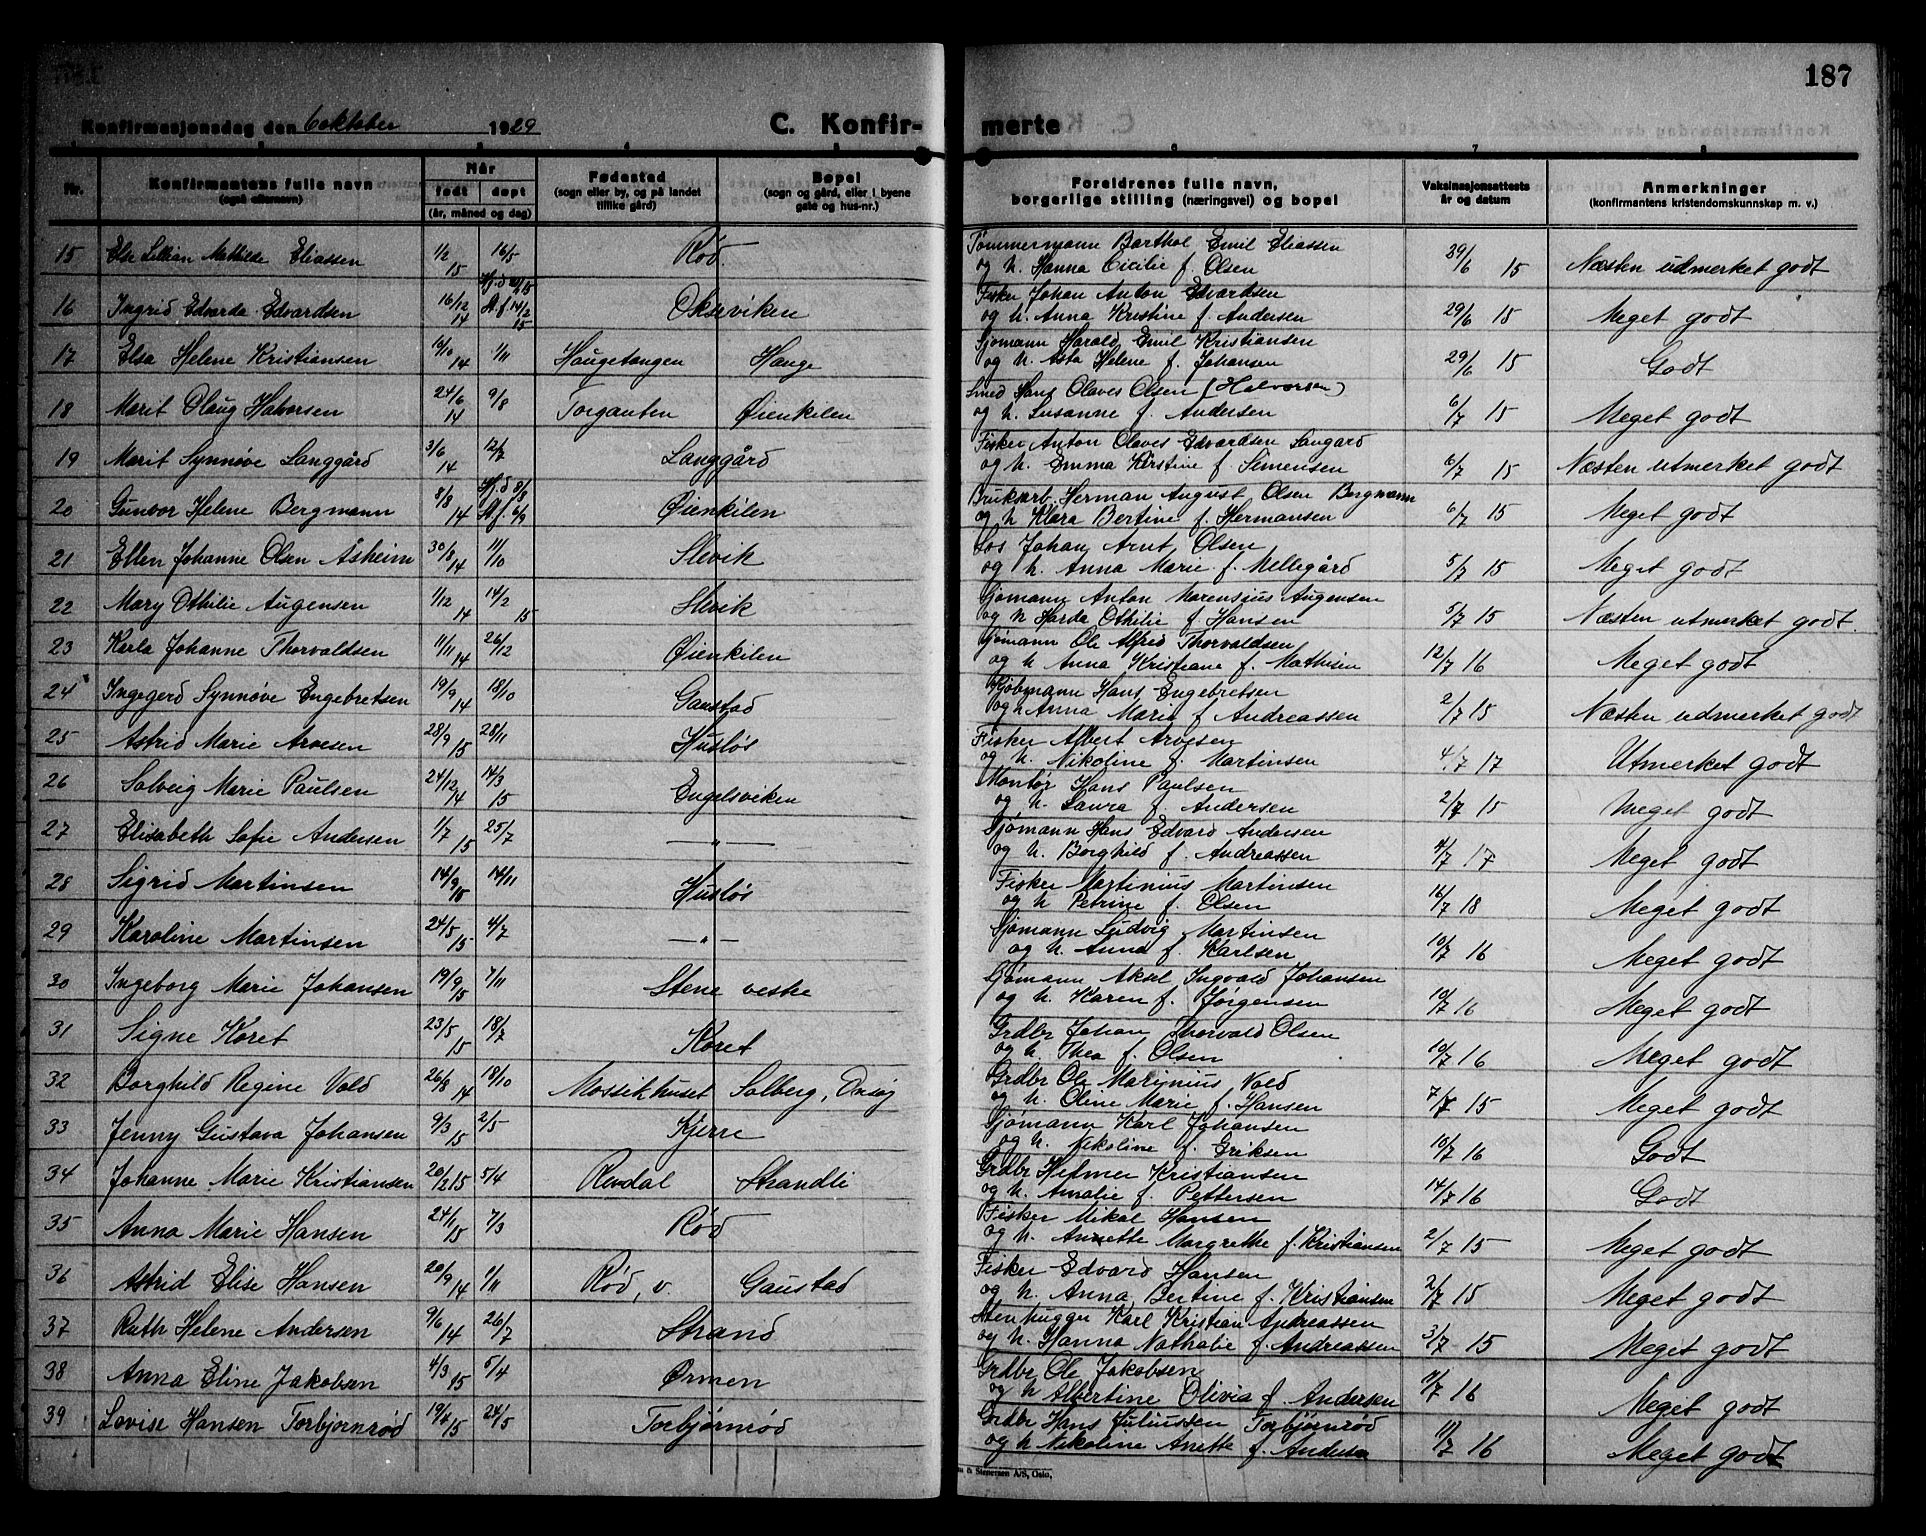 187
Konfirmasjonsdag den 6 oktober 1929 C. Konfir- merte
Nr. Konfirmantens fulle navn (også etternavn) Når født døpt (år, måned og dag) Fødested (sogn eller by, og på landet tillike gård) Bopel (sogn og gård, eller i byene gate og hus-nr.) Foreldrenes fulle navn, borgerlige stilling (næringsvei) og bopel Vaksinasjonsattests år og datum Anmerkninger (konfirmantens kristendomskunnskap m. v.)
6 7 8
15 Else Lillian Mathilde Eliassen 1/2 15 16/5 Rød. Tømmermann Barthol Emil Eliassen
og h. Hanna Cicilie f. Olsen 29/6 15 Næsten udmerket godt
16 Ingrid Edvarda Edvardsen 16/12 14 Hj.d. A.f. 14/2 15 Okseviken Fisker Johan Anton Edvardsen
og h. Anna Kristine f. Andersen 29/6 15 Meget godt
17 Elsa Helene Kristiansen 14 1/11 Haugetangen Hauge Sjømann Harald Emil Kristiansen
og h. Asta Helene f. Johansen 29/6 15 Godt
18 Marit Olaug Halvorsen 24/6 14 9/8 Torgauten Øienkilen Smed Hans Olaves Olsen (Halvorsen)
og h. Susanne f. Andersen 6/7 15 Meget godt
19 Marit Synnøve Langgård 3/6 14 12/7 Langgård Fisker Anton Olaves Edvardsen Langård
og h. Emma Kirstine f. Simensen 6/7 15 Næsten utmerket godt
20 Gunvor Helene Bergmann 8/8 14 Hj.d. 8/8 A.f. 6/9 Øienkilen Bruksarb. Herman August Olsen Bergmann
og h Klara Bertine f. Hermansen 6/7 15 Meget godt
21 Ellen Johanne Olsen Åsheim 30/8 14 11/10 Slevik Los Johan Arnt Olsen
og h. Anna Marie f. Mellegård 5/7 15 Meget godt
22 Mary Othilie Augensen 1/12 14 14/2 15 Slevik Sjømann Anton Marensius Augensen
og h Harda Othilie f. Hansen 5/7 15 Næsten utmerket godt.
23 Karla Johanne Thorvaldsen 11/11 14 26/12 Øienkilen Sjømann Ole Alfred Thorvaldsen
og h Anna Kristiane f. Mathisen 12/7 16 Meget godt
24 Ingegerd Synnøve Engebretsen 19/9 14 18/10 Gaustad Kjøbmann Hans Engebretsen
og h Anna Marie f Andreassen 2/7 15 Næsten udmerket godt
25 Astrid Marie Arvesen 28/9 15 28/11 Husløs Fisker Albert Arvesen
og h. Nikoline f. Martinsen 4/7 17 Utmerket godt
26 Solveig Marie Paulsen 24/12 14 14/3 15 Engelsviken Montør Hans Paulsen
og h. Laura f. Andersen 2/7 15 Meget godt
27 Elisabeth Sofie Andersen 1/7 15 25/7 — " — Sjømann Hans Edvard Andersen
og h. Borghild f. Andreassen 4/7 17 Meget godt
28 Sigrid Martinsen 14/9 15 14/11 Husløs Fisker Martinius Martinsen
og h Petrine f. Olsen 16/7 18 Meget godt
29 Karoline Martinsen 24/5 15 4/7 — " — Sjømann Ludvig Martinsen
og h. Anna f. Karlsen 10/7 16 Meget godt
30 Ingeborg Marie Johansen 19/9 15 7/11 Stene vestre Sjømann Aksel Ingvald Johansen
og h. Karen f. Jørgensen 10/7 16 Meget godt
31 Signe Koret 23/5 15 18/7 Koret Grdbr Johan Thorvald Olsen
og h. Thea f. Olsen 10/7 16 Meget godt
32 Borghild Regine Vold 26/8 14 18/10 Mossikhuset Solberg, Onsøy Grdbr Ole Marinius Vold
og h. Oline Marie f. Hansen 7/7 15 Meget godt
33 Jenny Gustava Johansen 9/3 15 2/5 Kjerre Sjømann Karl Johansen
og h. Nikoline f. Eriksen 10/7 16 Godt
34 Johanne Marie Kristiansen 20/2 15 5/4 Revdal Strandli Grdbr Helmer Kristiansen
og h. Amalie f. Pettersen 14/7 16 Godt
35 Anna Marie Hansen 24/1 15 7/3 Rød Fisker Mikal Hansen
og h. Annette Margrethe f. Kristiansen 2/7 15 Meget godt
36 Astrid Elise Hansen 20/9 14 1/11 Rød, v. Gaustad Fisker Edvard Hansen
og h. Anna Bertine f. Kristiansen 2/7 15 Meget godt
37 Ruth Helene Andersen 9/6 14 26/7 Strand Stenhugger Karl Kristian Andreassen
og h. Hanna Nathalie f. Andreassen 3/7 15 Meget godt
38 Anna Eline Jakobsen 4/3 15 5/4 Ørmen Grdbr Ole Jakobsen
og h Albertine Olivia f. Andersen 11/7 16 Meget godt
39 Lovise Hansen Torbjørnrød 19/4 15 24/5 Torbjørnrød Grdbr Hans Juliussen Torbjørnrød
og h Nikoline Anette f. Andersen 11/7 16 Meget godt
& Stenersen A/S, Oslo.